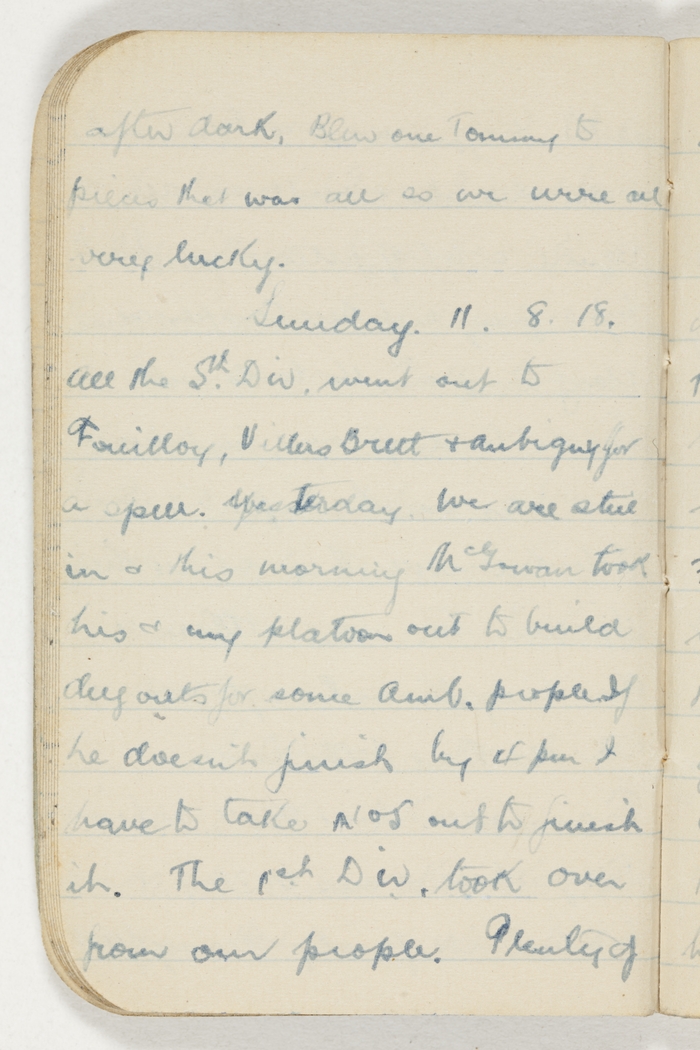 after dark. Blew one Tommy to
pieces that was all so we were all
very lucky.
Sunday. 11. 8. 18.
All the 5th. Div. went out to
Fouilloy, Villers Brett & Aubigny for
a spell. yesterday. We are still
in & this morning McGowan took
his & my platoon out to build
dug outs for some Amb. people. If
he doesn't finish by 4 pm I
have to take No 5 out to finish
it. The 1st Div. took over
from our people. Plenty of